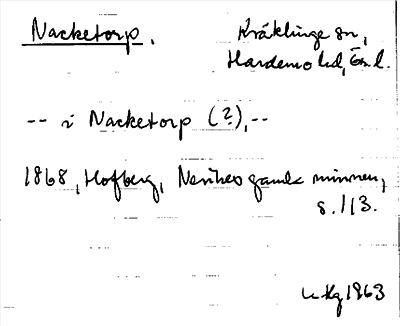 Nacketorp.
Kräklinge sn,
Hardemo hd, Ör.l.
-- i Nacketorp (?), --
1868, Hofberg, Nerikes gamla minnen,
s. 113.
1963